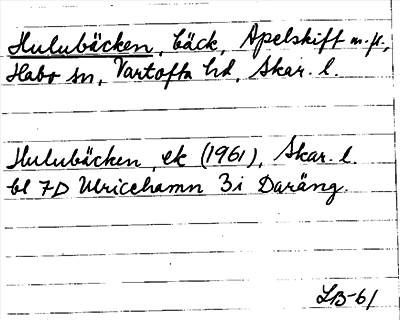 Hulubäcken, bäck, Apelskift m.fl.,
Habo sn, Vartofta hd, Skar. l.
Hulubäcken, ek (1961), Skar. l.
bl 7D Ulricehamn 3i Daräng.
LB-61